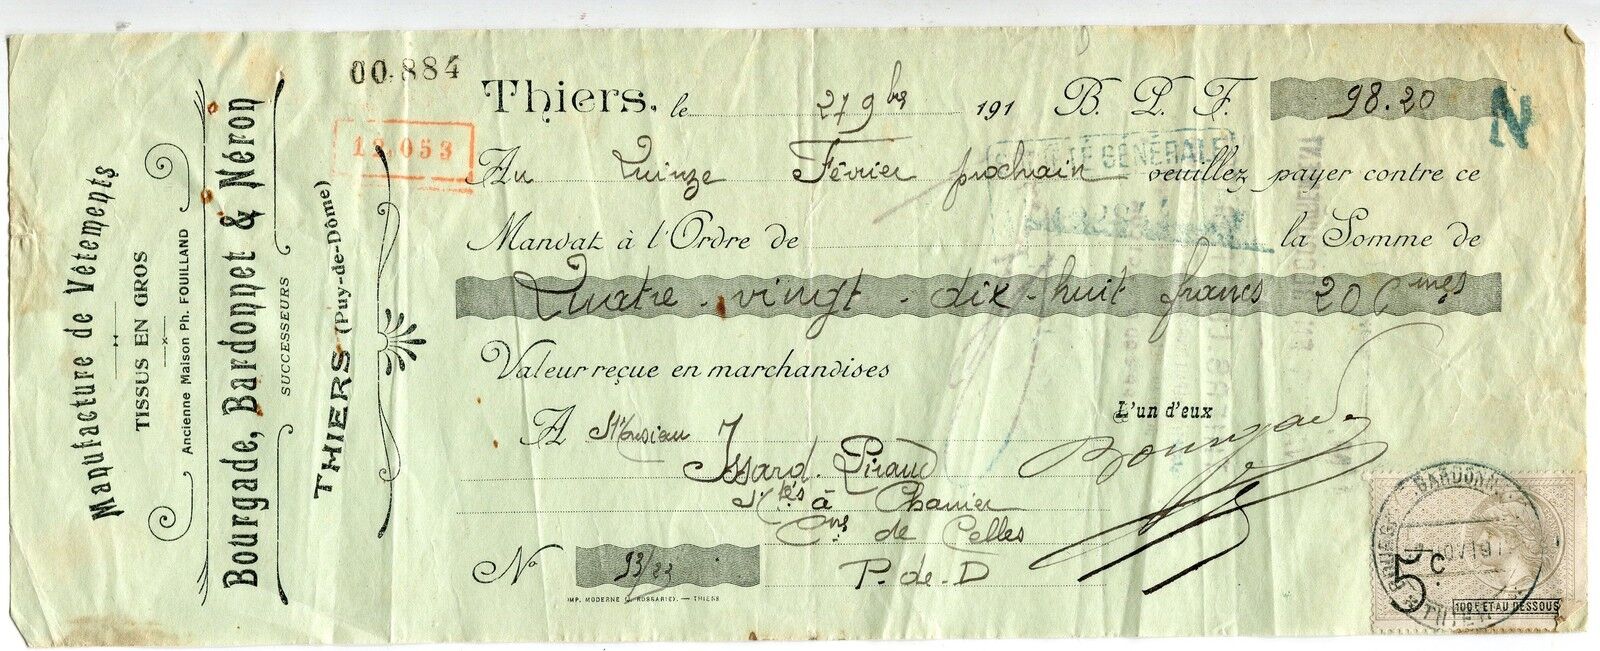 Manufacture de Vêtements
TISSUS EN GROS
Ancienne Maison Ph. FOUILLAND
Bourgade, Bardonnet & Néron
SUCCESSEURS
THIERS (Puy-de-Dôme)
00.884
12.053
Thiers, le 27 9bre 191 B. P. F. 98.20
N
SOCIÉTÉ GÉNÉRALE
Au Quinze Février prochain veuillez payer contre ce
Mandat à l'Ordre de la Somme de
Quatre-vingt-dix-huit francs 20 Cmes
Valeur reçue en marchandises
L'un d'eux
A Monsieur Issard-Piraud
Nt à Chanier
Cne de Celles
P.-de-D
Bourgade
No 93/33
IMP. MODERNE (J. ROSSARIE). — THIERS
BARDONNET
5c
100F ET AU DESSOUS